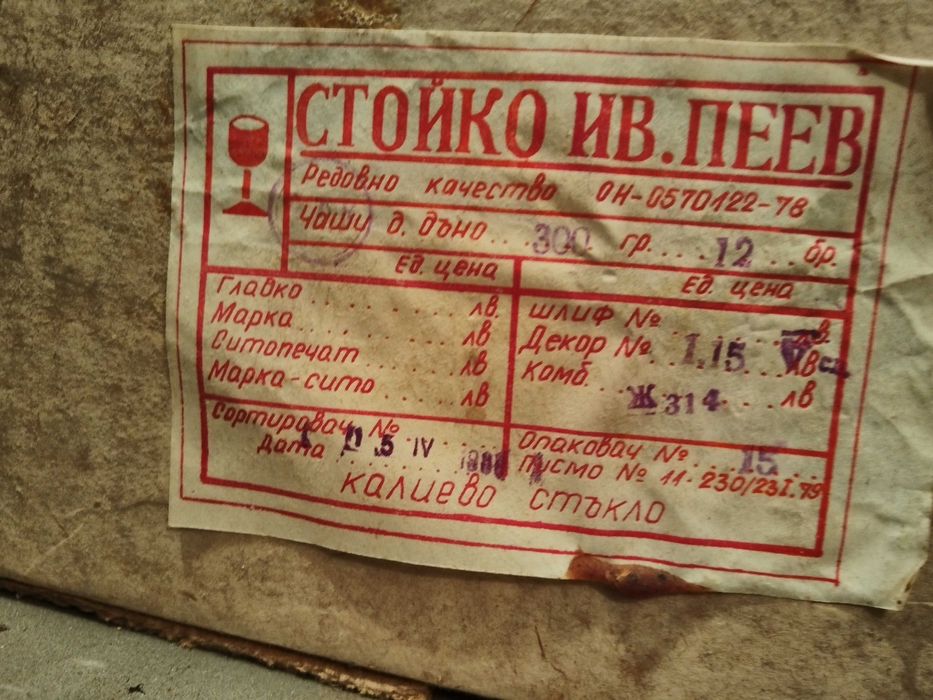 СТОЙКО ИВ. ПЕЕВ
Редовно качество ОН-0570122-78
Чаши д. дъно... 300 гр.... 12 ... бр.
Ед. цена
Гладко ........ лв.
Марка ......... лв
Ситопечат ...... лв
Марка-сито ..... лв
Ед. цена
шлиф № ........ лв.
Декор №. I.15 ... лв
комб. Ж 314 ... лв
Сортировач № .......
Дата 5 IV
Опаковач № 15
писмо № 11-230/23I.79
калиево стъкло